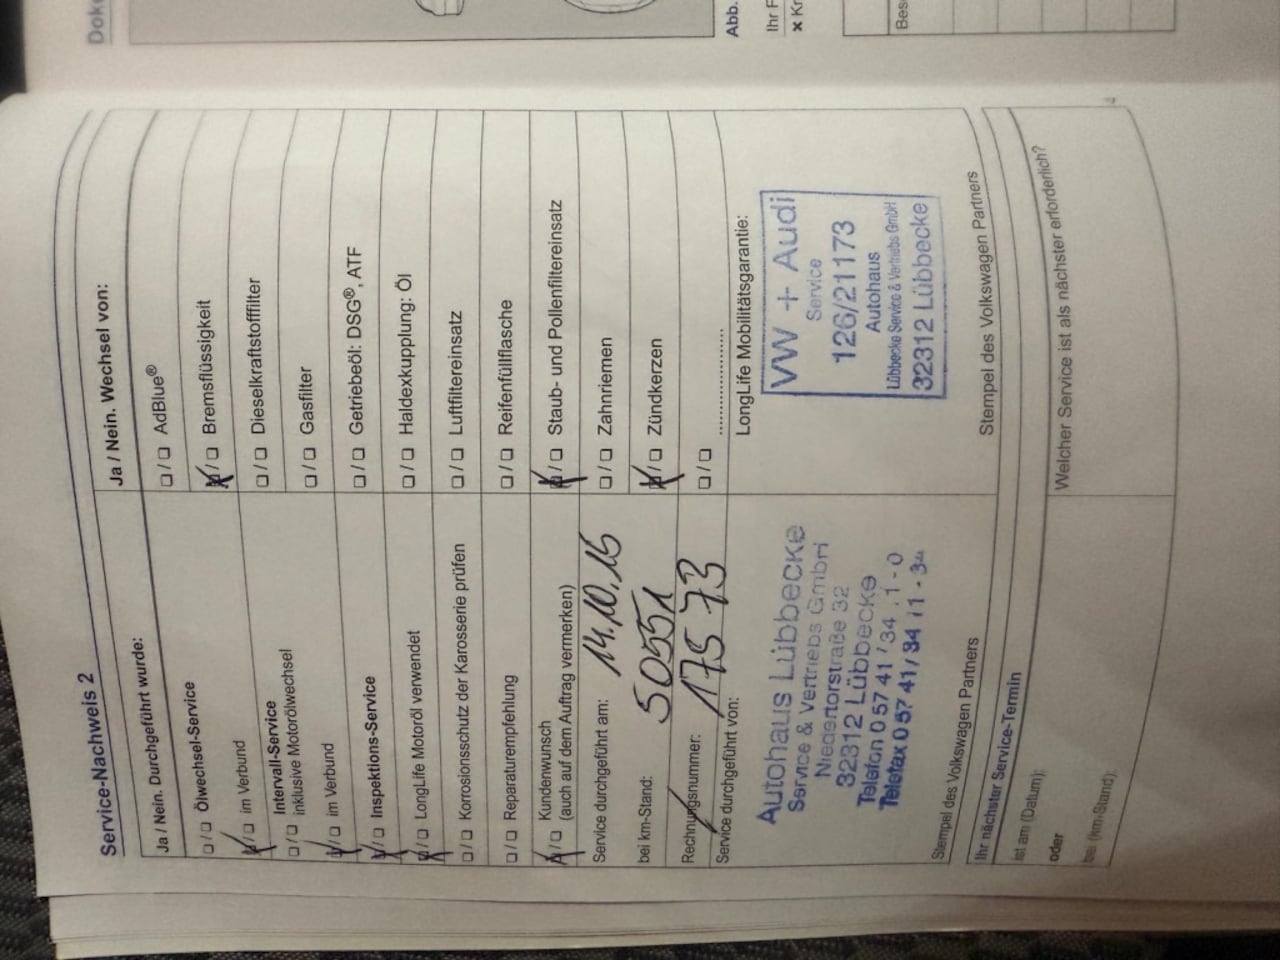 Service-Nachweis 2
Ja / Nein. Durchgeführt wurde:
/ Ölwechsel-Service
/ im Verbund
Intervall-Service
/ inklusive Motorölwechsel
/ im Verbund
/ Inspektions-Service
/ LongLife Motoröl verwendet
/ Korrosionsschutz der Karosserie prüfen
/ Reparaturempfehlung
/ Kundenwunsch
(auch auf dem Auftrag vermerken)
Service durchgeführt am: 14.10.15
bei km-Stand: 50551
Rechnungsnummer: 17573
Service durchgeführt von:
Autohaus Lübbecke
Service & Vertriebs GmbH
Niedertorstraße 32
32312 Lübbecke
Telefon 0 57 41 / 34 11 - 0
Telefax 0 57 41 / 34 11 - 34
Stempel des Volkswagen Partners
Ja / Nein. Wechsel von:
/ AdBlue®
/ Bremsflüssigkeit
/ Dieselkraftstofffilter
/ Gasfilter
/ Getriebeöl: DSG®, ATF
/ Haldexkupplung: Öl
/ Luftfiltereinsatz
/ Reifenfüllflasche
/ Staub- und Pollenfiltereinsatz
/ Zahnriemen
/ Zündkerzen
/ ....................
LongLife Mobilitätsgarantie:
VW + Audi
Service
126/21173
Autohaus
Lübbecke Service & Vertriebs GmbH
32312 Lübbecke
Stempel des Volkswagen Partners
Ihr nächster Service-Termin
ist am (Datum):
oder
bei (km-Stand):
Welcher Service ist als nächster erforderlich?
Abb.
Ihr F
x Kr
Bes
Doku